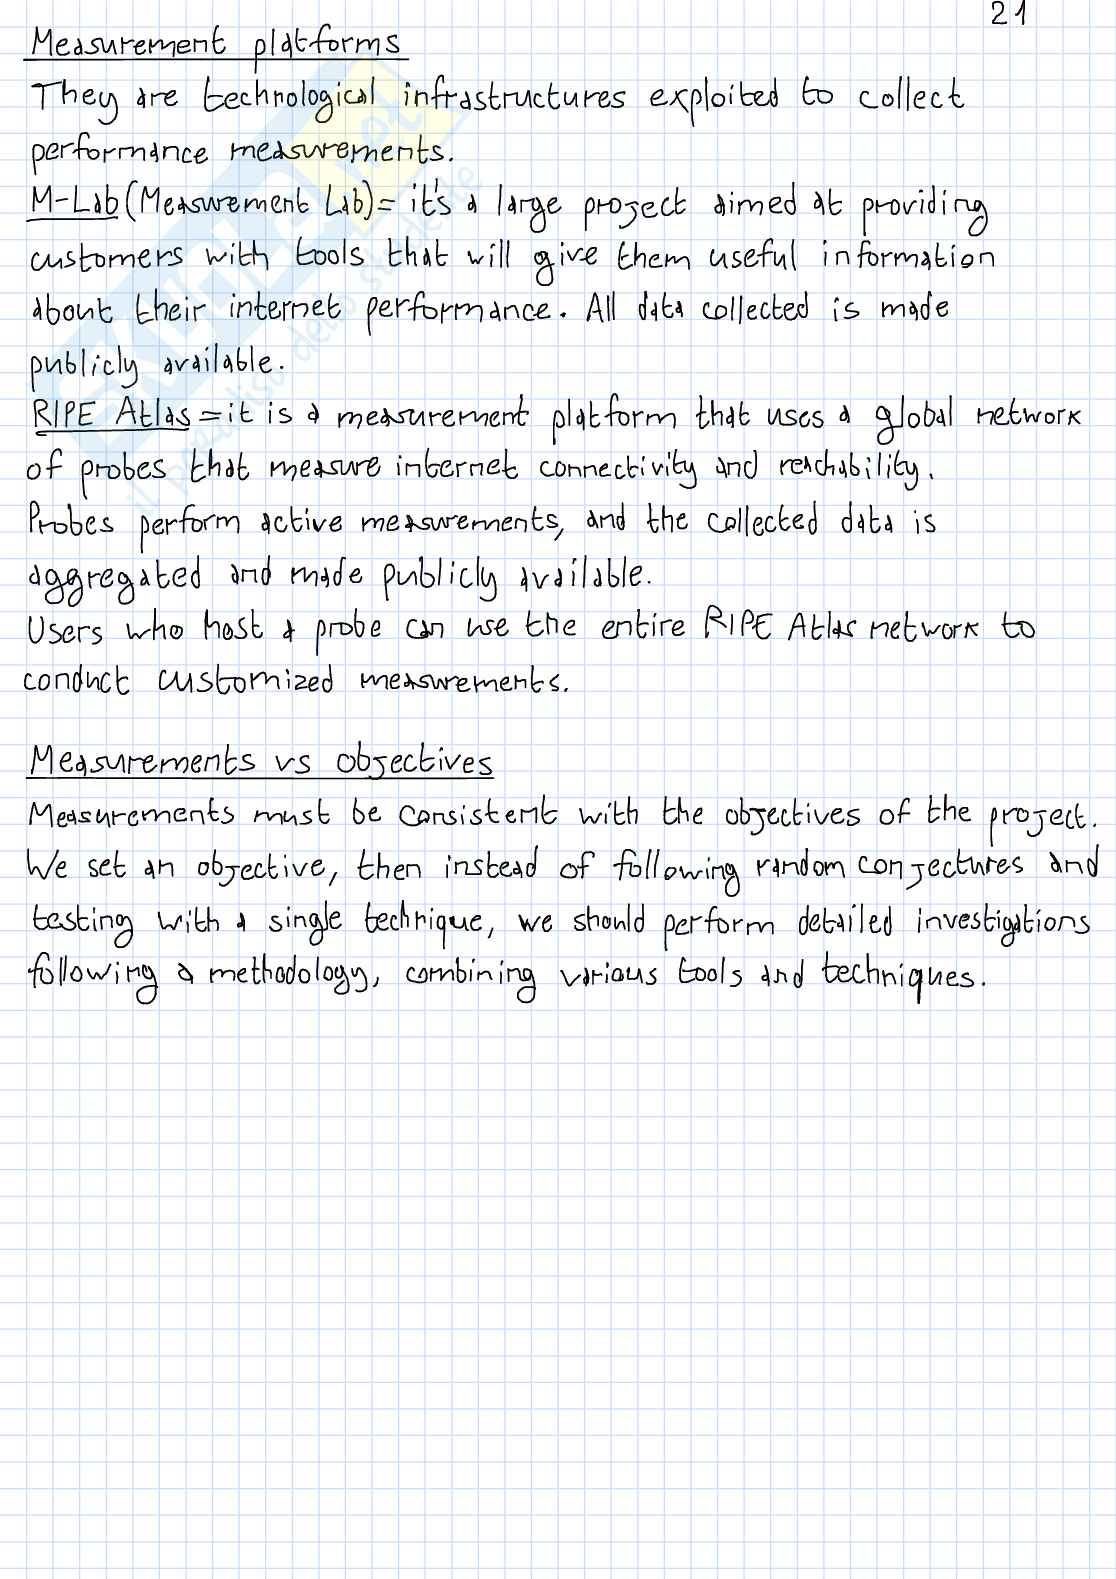 21
Measurement platforms
They are technological infrastructures exploited to collect
performance measurements.
M-Lab (Measurement Lab)= it's a large project aimed at providing
customers with tools that will give them useful information
about their internet performance. All data collected is made
publicly available.
RIPE Atlas = it is a measurement platform that uses a global network
of probes that measure internet connectivity and reachability.
Probes perform active measurements, and the collected data is
aggregated and made publicly available.
Users who host a probe can use the entire RIPE Atlas network to
conduct customized measurements.
Measurements vs objectives
Measurements must be consistent with the objectives of the project.
We set an objective, then instead of following random conjectures and
testing with a single technique, we should perform detailed investigations
following a methodology, combining various tools and techniques.